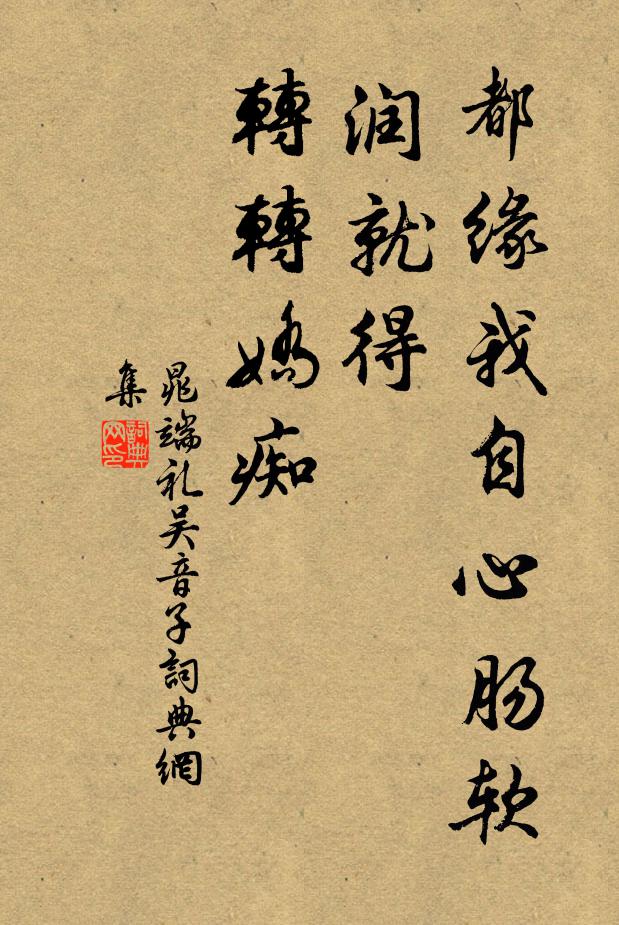 都缘我自心肠软
润就得
轉轉嬌痴
晁端礼吴音子詞典網
集
詞典
网印